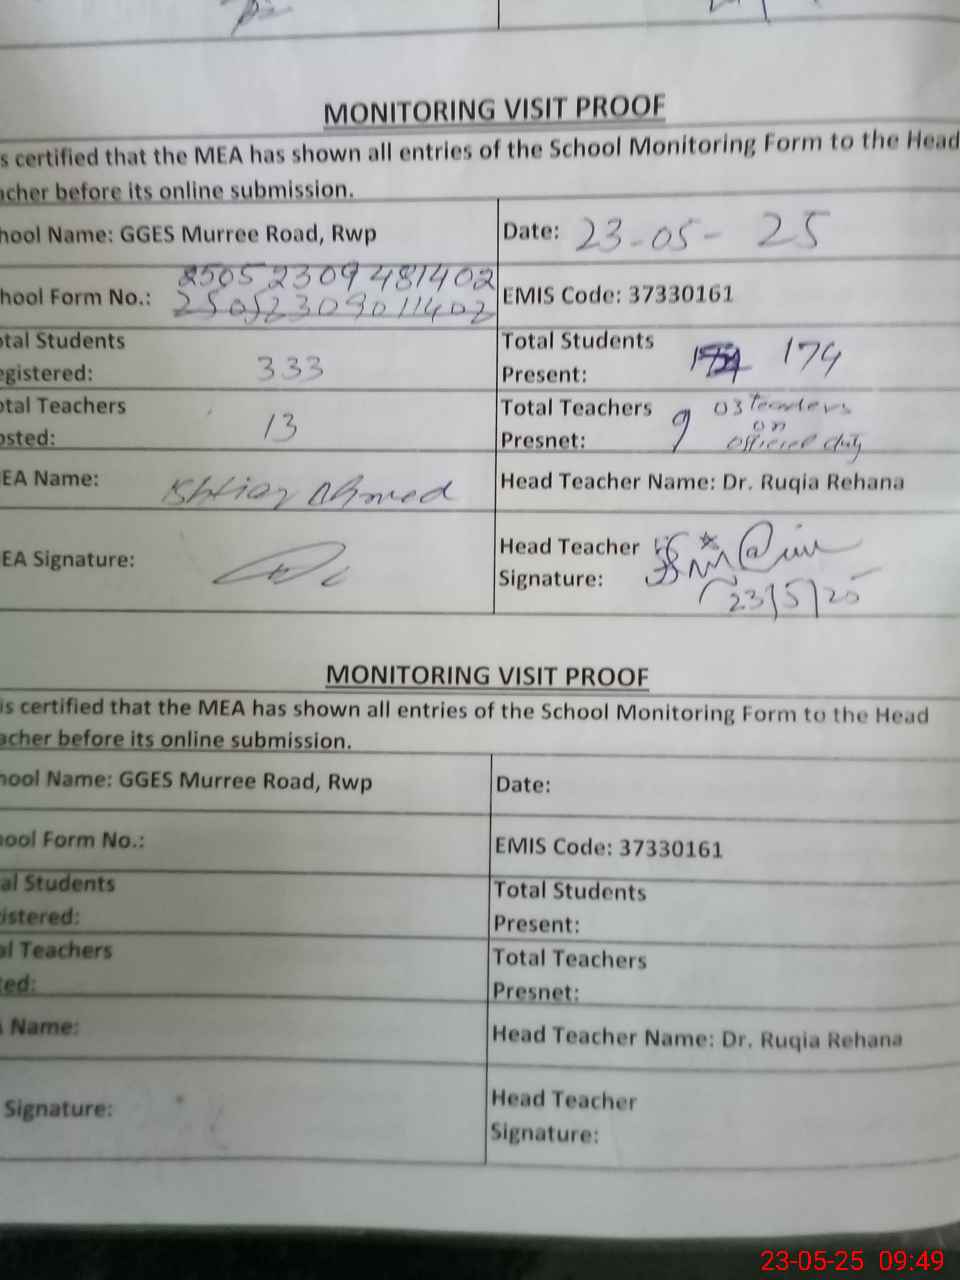 MONITORING VISIT PROOF
s certified that the MEA has shown all entries of the School Monitoring Form to the Head
acher before its online submission.
hool Name: GGES Murree Road, Rwp
Date: 23-05-25
hool Form No.: 25052309481402
25052309011402
EMIS Code: 37330161
otal Students
egistered: 333
Total Students
Present: 174
otal Teachers
osted: 13
Total Teachers
Presnet: 9 03 teachers
on
official duty
EA Name: Ishtiaq Ahmed
Head Teacher Name: Dr. Ruqia Rehana
EA Signature:
Head Teacher
Signature:
23/5/25
MONITORING VISIT PROOF
is certified that the MEA has shown all entries of the School Monitoring Form to the Head
acher before its online submission.
hool Name: GGES Murree Road, Rwp
Date:
ool Form No.:
EMIS Code: 37330161
al Students
istered:
Total Students
Present:
al Teachers
ted:
Total Teachers
Presnet:
Name:
Head Teacher Name: Dr. Ruqia Rehana
Signature:
Head Teacher
Signature:
23-05-25 09:49